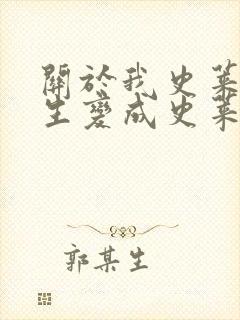 關於我史萊
生變成史萊
郭某生